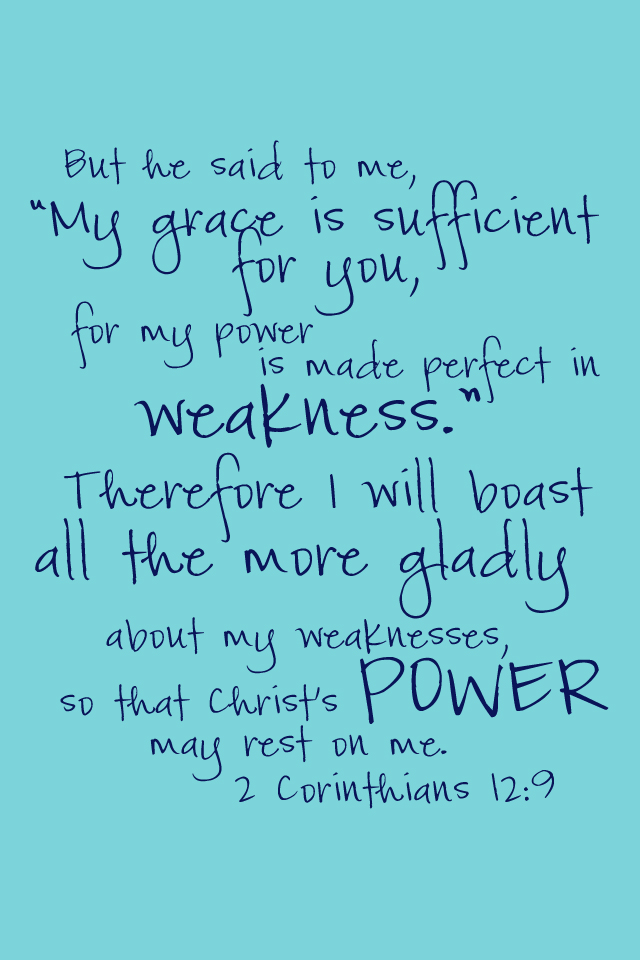 But he said to me,
"My grace is sufficient
for you,
for my power
is made perfect in
weakness."
Therefore I will boast
all the more gladly
about my weaknesses,
so that Christ's POWER
may rest on me.
2 Corinthians 12:9